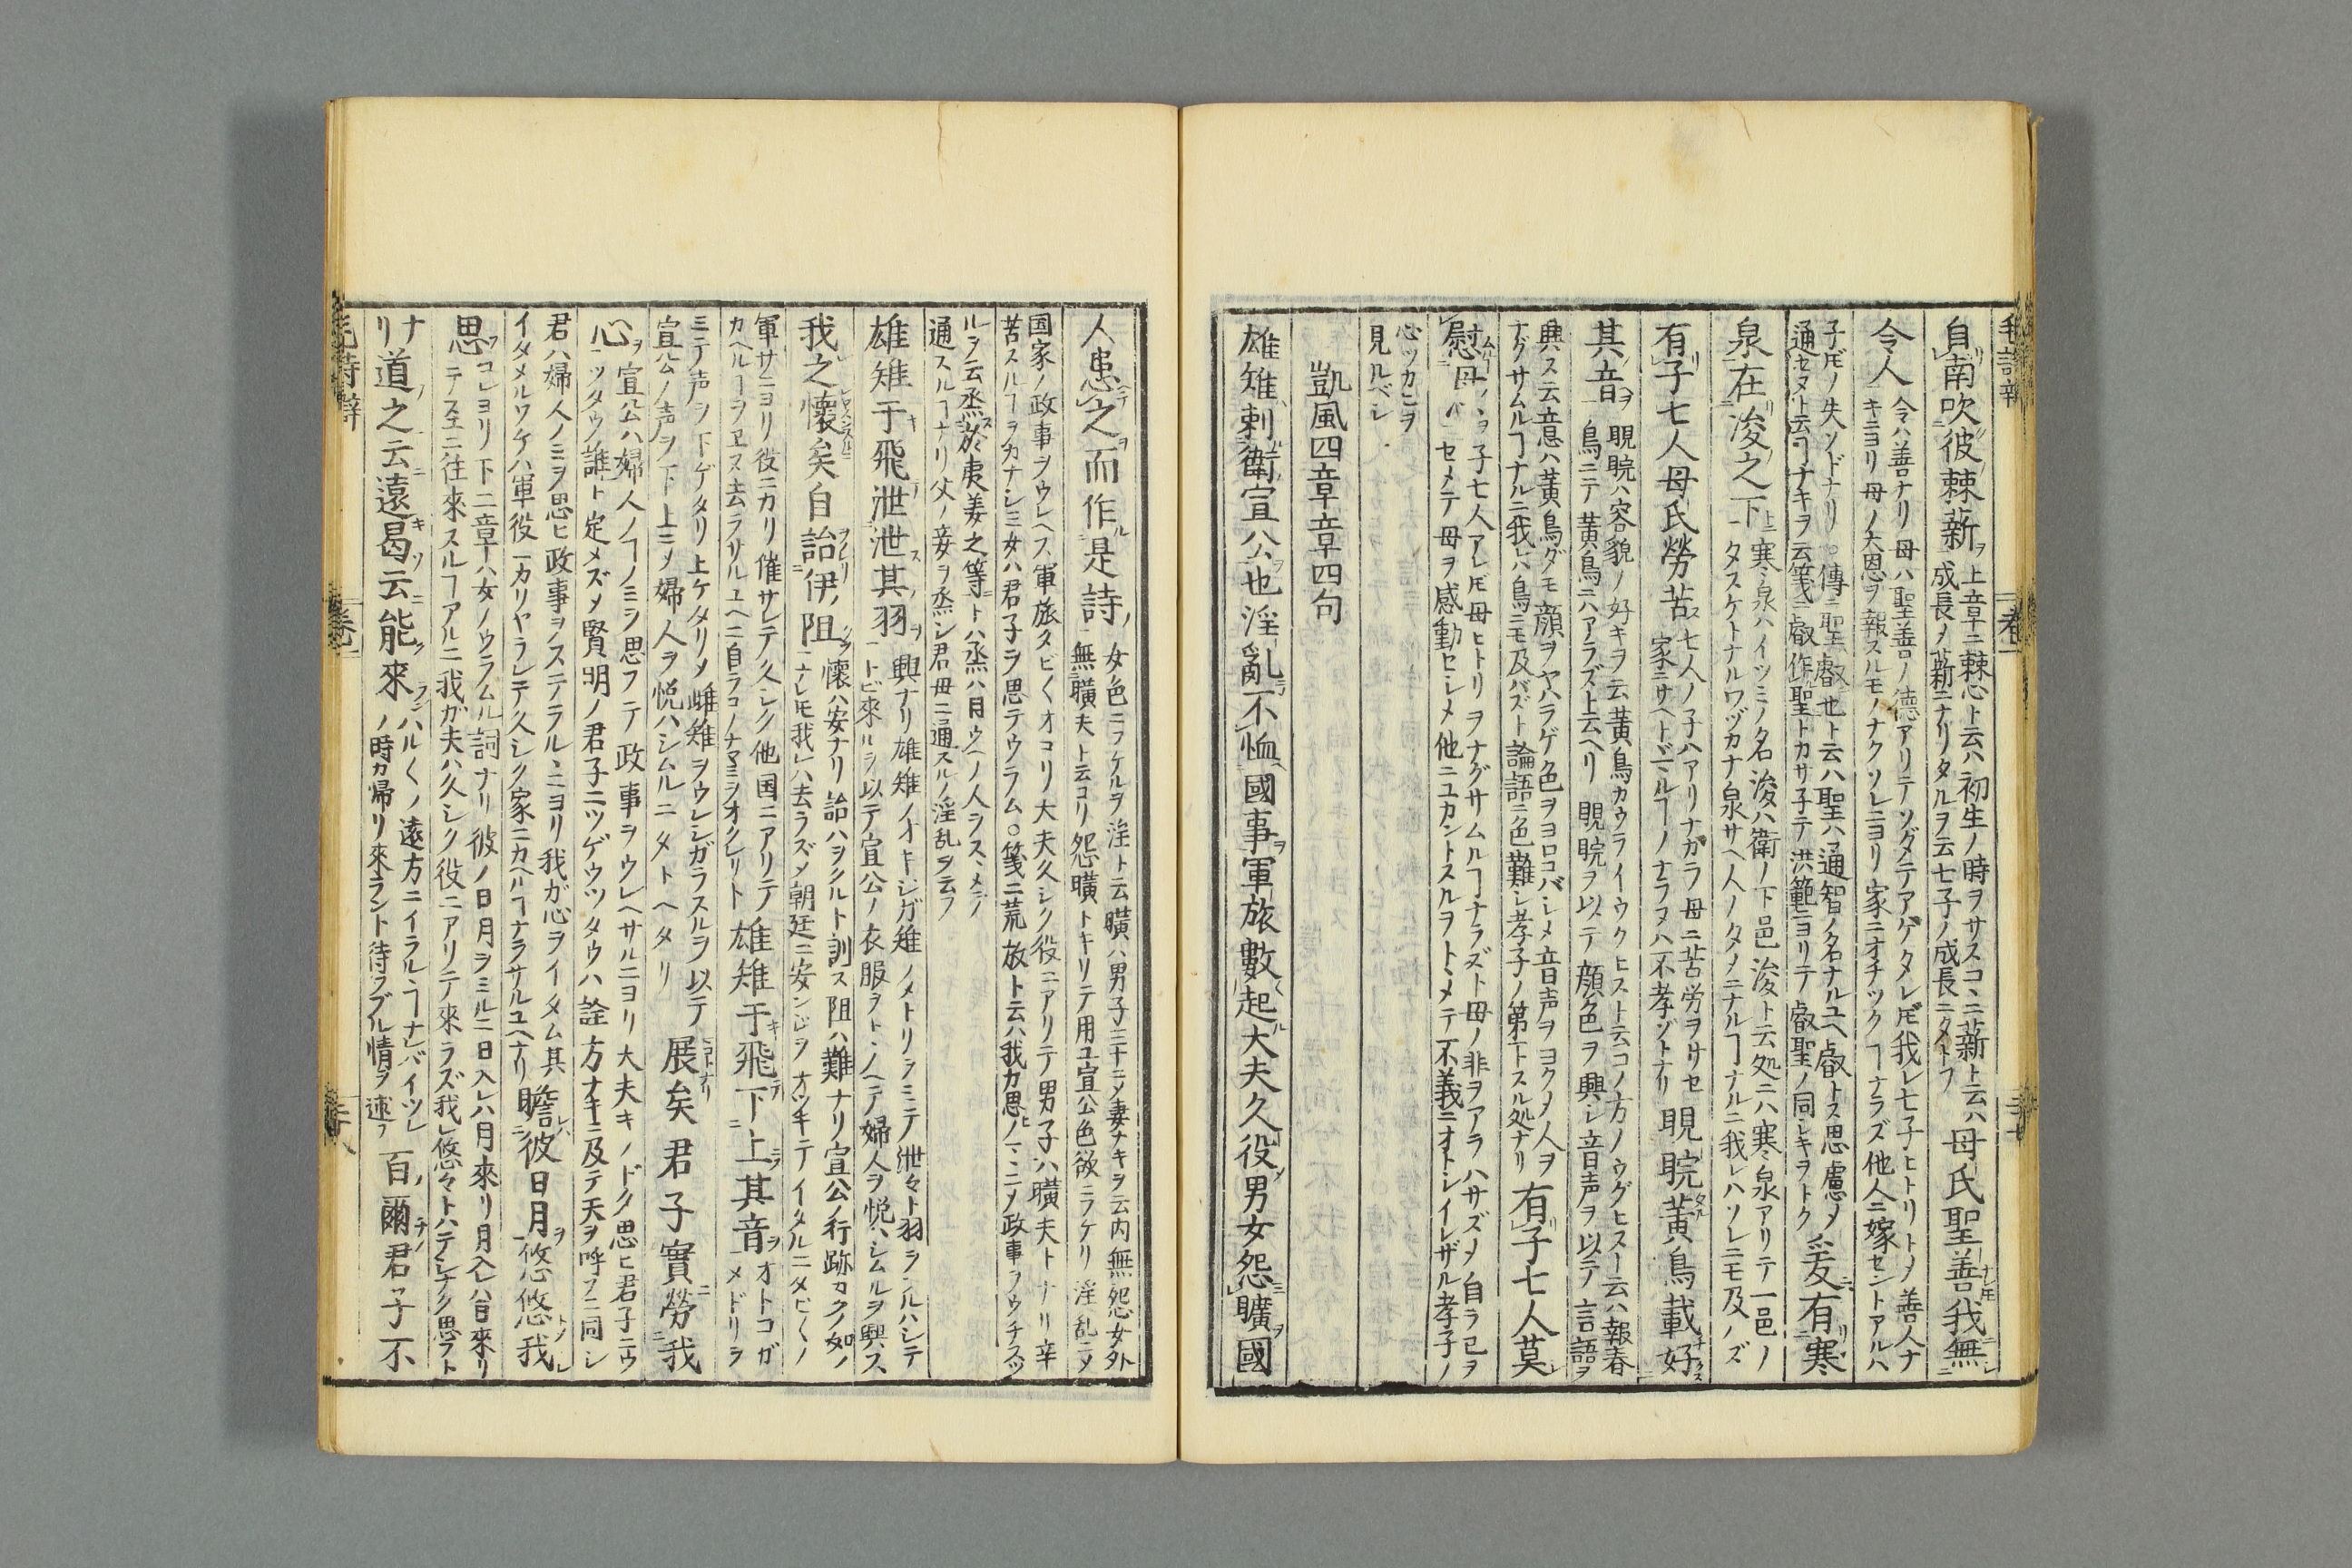 自南吹彼棘薪 上章ニ棘心ト云ハ初生ノ時ヲサスコヽニ薪ト云ハ 母氏聖善我無
成長ノ薪ニナリタルヲ云七子ノ成長ニタトフ
令人 令ハ善ナリ母ハ聖善ノ德アリテソダテアゲタレ𪜈我レ七子ヒトリトノ善人ナ
キニヨリ母ノ大恩ヲ報スルモノナクソレニヨリ家ニオチツクヿナラズ他人ニ嫁セントアルハ
子𪜈ノ失ンドナリ○傳ニ聖叡也ト云ハ聖ハ通智ノ名ナルユヘ叡トス思慮ノ
通セヌト云ヿナキヲ云箋ニ叡作聖トカサ子テ洪範ニヨリテ叡聖ノ同シキヲトク 爰有寒
泉在浚之下 寒泉ハイツミノ名浚ハ衛ノ下邑浚ト云処ニハ寒泉アリテ一邑ノ
タスケトナルワヅカナ泉サヘ人ノタメニナルヿナルニ我レハソレニモ及ノズ
有子七人母氏勞苦 七人ノ子ハアリナガラ母ニ苦労ヲサセ
家ニサヘトヾマルヿノナラヌハ不孝ゾトナリ 睍睆黃鳥載好
其音 睍睆ハ容貌ノ好キヲ云黃鳥カウライウクヒスト云コノ方ノウグヒスヿ云ハ報春
鳥ニテ黃鳥ニハアラズト云ヘリ 睍睆ヲ以テ顔色ヲ興シ音声ヲ以テ言語ヲ
興ス云意ハ黃鳥ダモ顔ヲヤハラゲ色ヲヨロコバシメ音声ヲヨクメ人ヲ
ナグサムルヿナルニ我レハ鳥ニモ及バズト論語ニ色難シ孝子ノ第一トスル処ナリ 有子七人莫
慰母 子七人アレ𪜈母ヒトリヲナグサムルヿナラズト母ノ非ヲアラハサズメ自ラ已ヲ
セメテ母ヲ感動セシメ他ニユカントスルヲトヽメテ不義ニオトシイレザル孝子ノ
心ツカヒヲ
見ルベシ
凱風四章章四句
雄雉刺衛宣公也淫亂不恤國事軍旅數起大夫久役男女怨曠國
人患之而作是詩 女色ニフケルヲ淫ト云曠ハ男子三十ニメ妻ナキヲ云内無怨女外
無曠夫ト云コリ怨曠トキリテ用ユ宣公色欲ニフケリ淫乱ニメ
国家ノ政事ヲウレヘス軍旅タビ〱オコリ大夫久シク役ニアリテ男子ハ曠夫トナリ辛
苦スルヿヲカナシミ女ハ君子ヲ思テウラム○箋ニ荒放ト云ハ我カ思ノマヽニメ政事ヲウチスツ
ルヲ云烝於夷姜之等ト ハ烝ハ目ウヘノ人ヲスヽメテ
通スルヿナリ父ノ妾ヲ烝シ君母ニ通スルノ淫乱ヲ云フ
雄雉于飛泄泄其羽 興ナリ雄雉ノオキジガ雉ノメトリヲミテ泄々ト羽ヲフルハシテ
トビ來ルヲ以テ宣公ノ衣服ヲトヽノヘテ婦人ヲ悦ハシムルヲ興ス
我之懷矣自詒伊阻 懷ハ安ナリ詒ハヲクルト訓ス阻ハ難ナリ宣公ノ行跡カク如ノ
ナレ𪜈我レハ去ラズメ朝廷ニ安ンジヲオツキテイタルニタビ〱ノ
軍サニヨリ役ニカリ催サレテ久シク他国ニアリテ
カヘルヿヲヱス去ラサルユヘニ自ラコノナヤミヲオクレリト 雄雉于飛下上其音 オトコガ
メドリヲ
ミテ声ヲ下ゲタリ上ケタリメ雌雉ヲウレシガラスルヲ以テ
宣公ノ声ヲ下上ニメ婦人ヲ悦ハシムルニタトヘタリ 展矣君子實勞我
心 宣公ハ婦人ノヿノミヲ思フテ政事ヲウレヘサルニヨリ大夫キノドク思ヒ君子ニウ
ツタウ誰ト定メズメ賢明ノ君子ニツゲウツタウハ詮方ナキニ及テ天ヲ呼フニ同シ
君ハ婦人ノミヲ思ヒ政事ヲステラルヽニヨリ我ガ心ヲイタム其
イタメルワケハ軍役ニカリヤラレテ久シク家ニカヘルヿナラサルユヘナリ 瞻彼日月悠悠我
思 コレヨリ下二章ハ女ノウラムル詞ナリ彼ノ日月ヲミルニ日入レハ月來リ月入レハ日來リ
テ互ニ往來スルヿアルニ我ガ夫ハ久シク役ニアリテ來ラズ我レ悠々トハテシナク思フト
ナリ 道之云遠曷云能來 ハル〱ノ遠方ニイラルヽヿナレバイツレ
ノ時カ帰リ來ラント待ワブル情ヲ述フ 百爾君子不
毛詩辯
卷二
二十七
毛詩辯
卷二
二十八